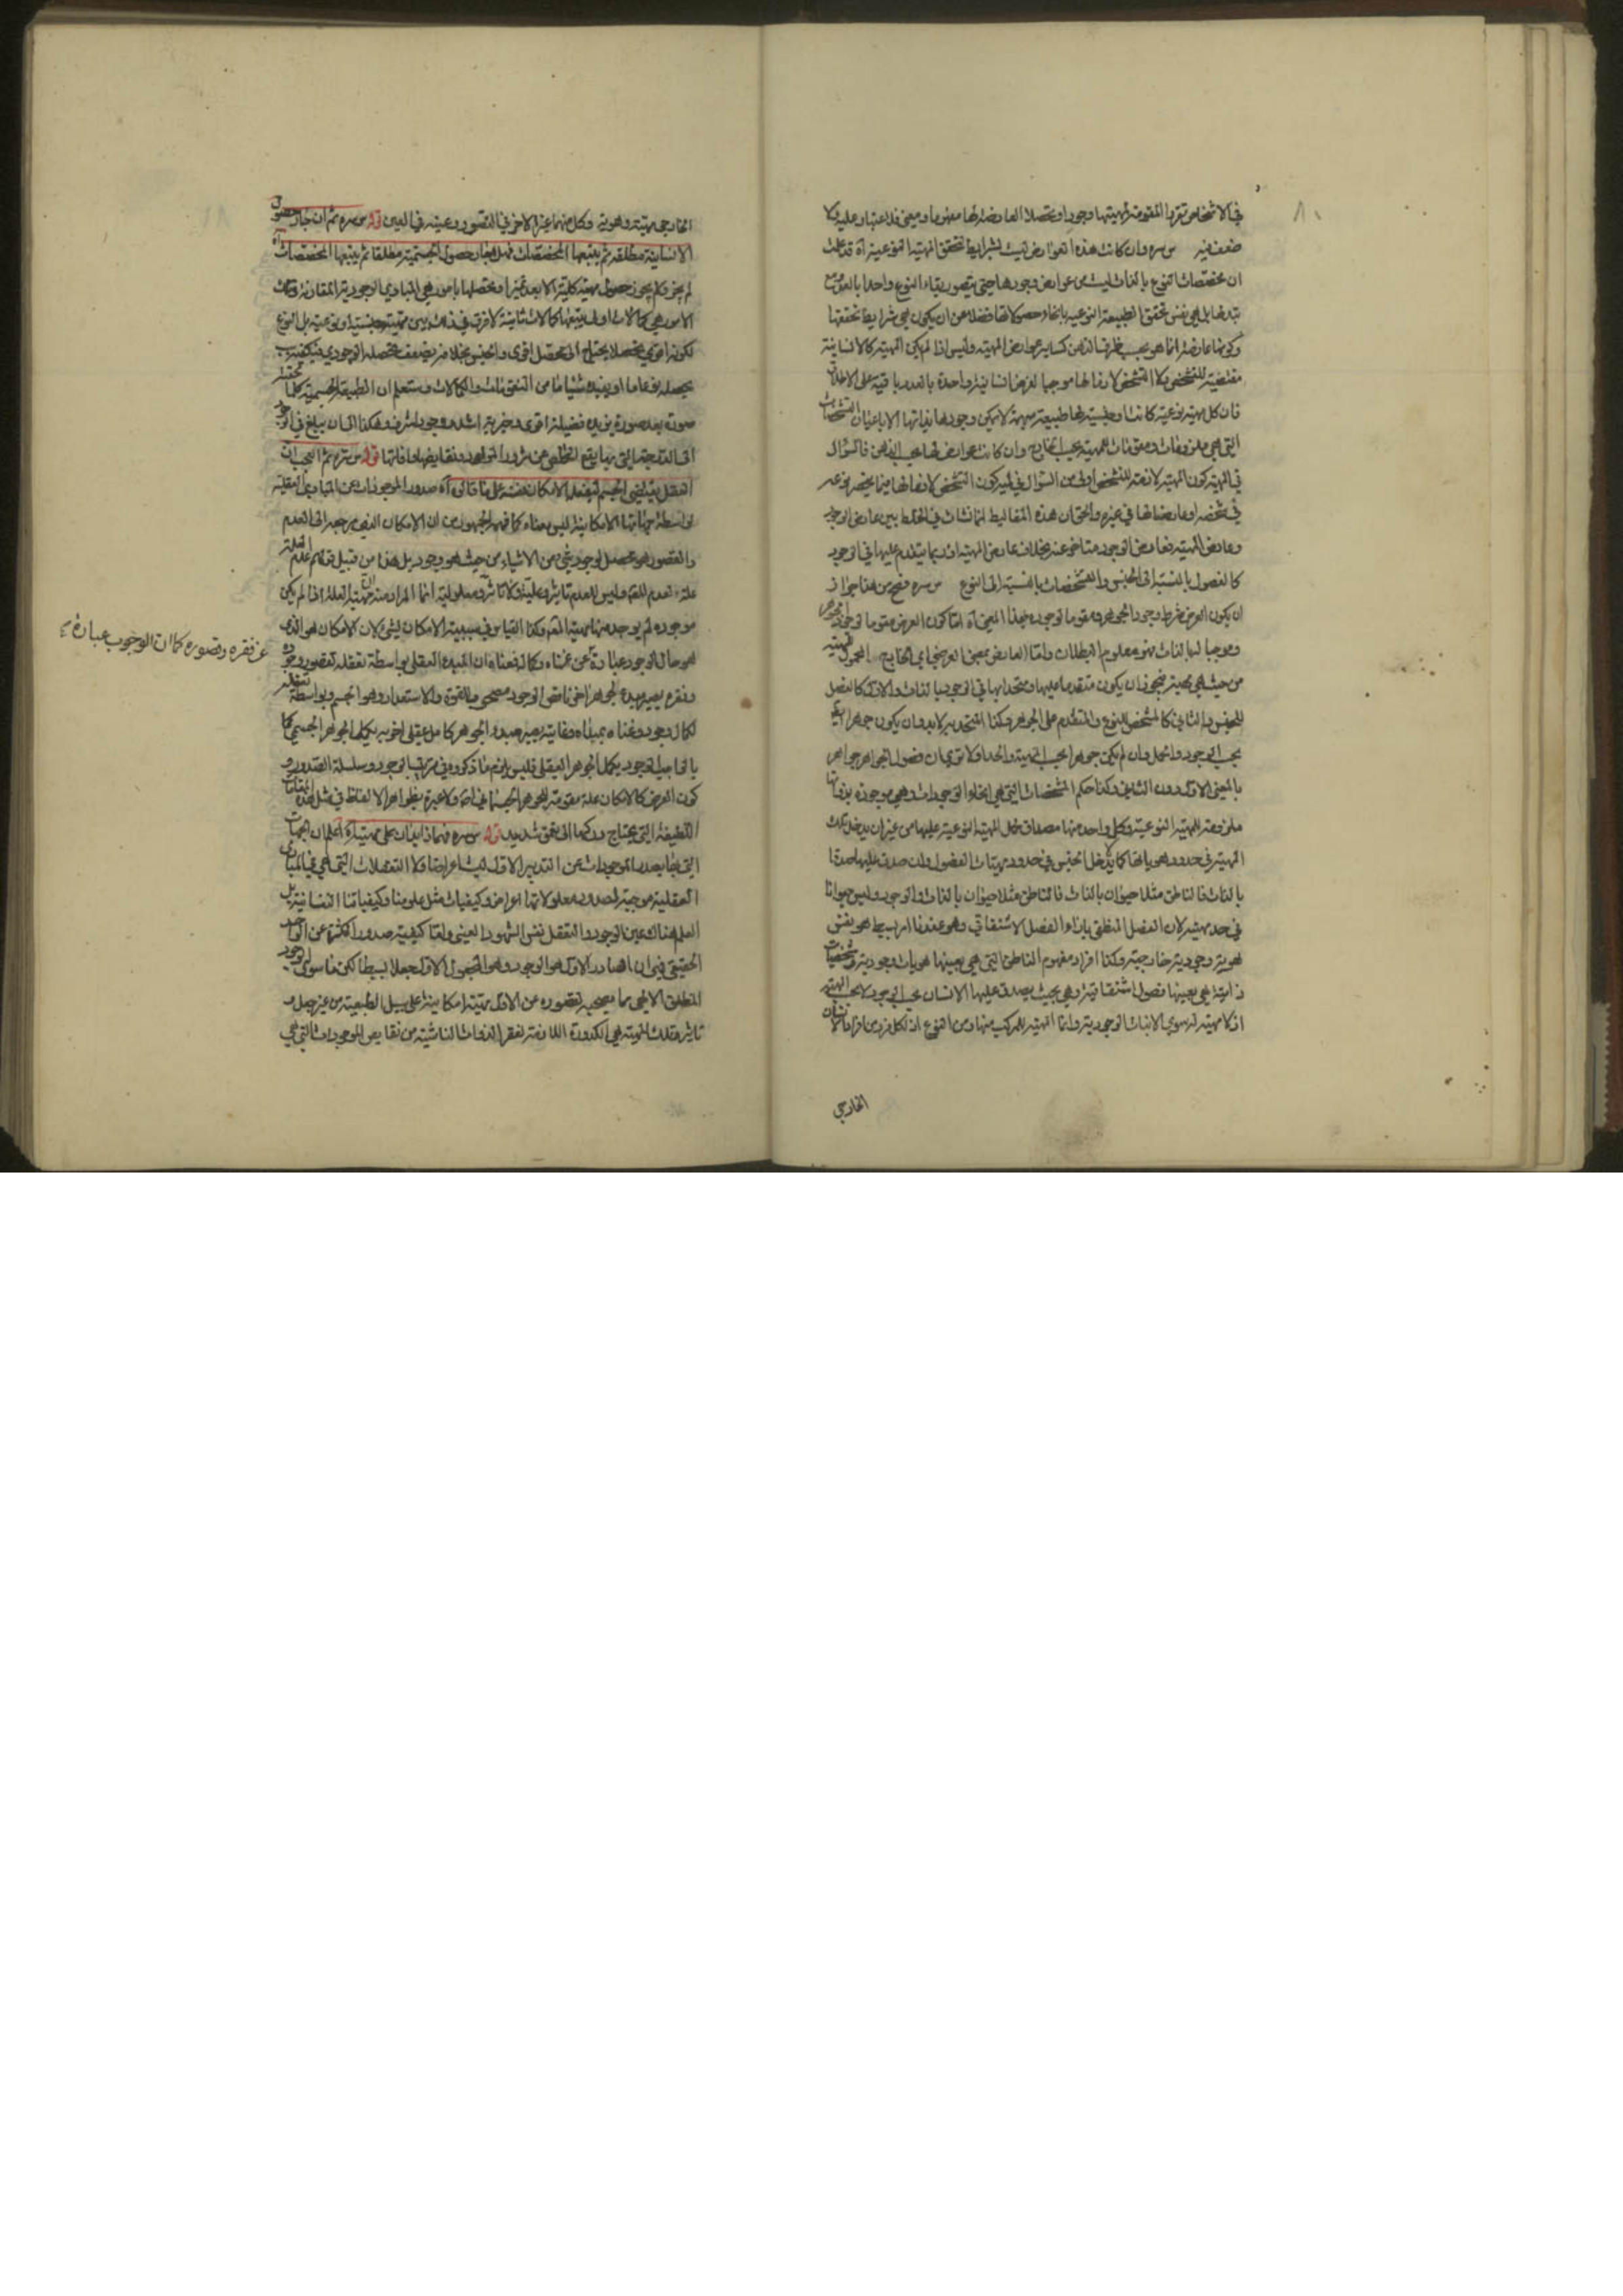 في الاشخاص تقررا لمقومة لمهيتها وجودا ومحصلا العارضة لها مفهوما ومعنى فلا اعتبار عليه ولا
ضعف فيه س سره وان كانت هذه العوارض ليست بشرايط لتحقق المهية النوعية آه قد علمت
ان مخصصات النوع بالذات ليست من عوارض وجودها حتى يتصور بقاء النوع واحدا بالعدد مع
تبدلها بل هي نفس تحقق الطبيعة النوعيه بانحاء حصولاتها فضلا عن ان يكون هي شرايط تحققها
وكونها عارضة انما هو بحسب ظرف الذهن كساير عوارض المهية وليس اذا لم يكن المهية كالانسانية
مقتضية للتشخص ولا التشخص لازما لها موجبا لعروض انسانية واحدة بالعدد باقية على الاطلاق
فان كل مهية نوعية كانت او جنسية لها طبيعة مبهمة لا يمكن وجودها بذاتها الا باعيان التشخصات
التي هي ملزومات ومقومات للمهية بحسب الخارج وان كانت عوارض لها بحسب الذهن فالسؤال
في المهية كون المهية لازمة للتشخص اولى من السؤال في كون التشخص لازما لها فيما ينحصر نوعه
في شخصه او عارضا لها في غيره والحق ان هذه المغاليط انما نشات في الخلط بين عارض الوجود
وعارض المهية فعارض الوجود متاخر عنه بخلاف عارض المهية اذ ربما يتقدم عليها في الوجود
كالفصول بالنسبة الى الجنس والمشخصات بالنسبة الى النوع س سره فصح من هذا جواز
ان يكون العرض شرط وجود الجوهر ومقوما لوجوده بهذا المعنى آه اما كون العرض مقوما لوجود الجوهر
وموجبا لها بالذات فهو معلوم البطلان واما العارض بمعنى العرضي اي الخارج المحمول للمهية
من حيث هي مهية فيجوز ان يكون متقدما عليها ومتحدا بها في الوجود بالذات والاول كالفصل
للجنس والثاني كالمشخص للنوع والمتقدم على الجوهر وكذا المتحد به لابد وان يكون جوهرا ايضا
بحسب الوجود والحمل وان لم يكن جوهرا بحسب المهية والحد اولا ترى ان فصول الجواهر جواهر
بالمعنى الاول دون الثاني وكذا حكم المشخصات التي هي انحاء الوجودات وهي موجودة بذواتها
ملزومة للمهية النوعية وكل واحد منها مصداق حمل المهية النوعية عليها من غير ان يدخل تلك
المهية في حدود هوياتها كما يدخل الجنس في حدود مهيات الفصول وان صدق عليها صدقا
بالذات فالناطق مثلا حيوان بالذات فالناطق مثلا حيوان بالذات والوجود وليس حيوانا
في حد مهيته لان الفصل المنطقي بازاء الفصل الاشتقاقي وهو عندنا امر بسيط هو نفس
هوية وجودية خارجية وكذا افراد مفهوم الناطق التي هي بعينها هويات وجودية وتشخصات
ذاتية هي بعينها فصول اشتقاقية وهي بحيث يصدق عليها الانسان بحسب الوجود لا بحسب المهية
اذ لا مهية له سوى الانيات الوجودية وانما المهية للمركب منها ومن النوع اذ لكل فرد من افراد الانسان
الخارجي
الخارجي مهية وهوية وكل منهما غير الاخر في التصور وعينه في العين قوله س سره ثم ان جاز حصول
الانسانية مطلقة ثم يتبعها المخصصات فهل جاز حصول الجسمية مطلقا ثم يتبعها المخصصات آه
لم يجز ولم يجوز حصول مهية كلية الا بعد تميزها وتحصلها بامور هي المبادي الوجودية المقارنة وتلك
الامور هي كمالات اول يتبعها كمالات ثانية لا فرق في ذلك بين مهية جنسية او نوعية بل النوع
لكونه اقوى تحصلا يحتاج الى محصل اقوى والجنس بخلافه لضعف تحصله الوجودي فيكفيه
يجعله نوعا ما او يفيده شيئا ما من المقومات والكمالات وستعلم ان الطبيعة الجسمية كلما تحققت
صورة بعد صورة يزيده فضيلة اقوى وخيرية اشد ووجود اشرف وهكذا الى ان يبلغ في الوجود
الى الدرجة التي بها يقع التخلص من شرور المواد ونقايضها وافاتها قوله س سره ثم العجب ان
العقل يقتضي الجسم لتعقل الامكان نفسه على ما قالوا آه صدور الموجودات عن المبادي العقلية
بواسطة جهاتها الامكانية ليس معناه كما فهمه الجمهور من ان الامكان الذي مرجعه الى العدم
والقصور هو محصل لوجود شيء من الاشياء من حيث هو وجود بل هذا من قبيل قولهم عدم العلة
علة لعدم المعلول وليس للعدم تاثير وعلية ولا تاثر ومعلولية انما المراد منه ان مهية العلة اذا لم يكن
موجودة لم يوجد منها مهية المعلول وكذا القياس في سببية الامكان لشيء لان الامكان هو الذي
هو حال الوجود عبارة عن غناه وكماله فمعناه ان المبدع العقلي بواسطة تعقله لقصور وجوده
وفقره يصير مبدء لجوهر اخر ناقص الوجود مصحوب بالقوة والاستعداد وهو الجسم وبواسطة تعقله
لكمال وجوده وغناه بمبدئه وغايته يصير مبدء لجوهر كامل عقلي اخر به يكمل الجواهر الجسمية كما
بالواجب الوجود يكمل الجوهر العقلي فليس يلزم ما ذكروه في مراتب الوجود وسلسلة الصدور
كون العرض كالامكان علة مقومة للجوهر الجسماني آه ولا عبرة بظواهر الالفاظ في مثل هذه المقامات
اللطيفة التي يحتاج دركها الى تعمق شديد قوله س سره فهما اذ ذاك زايدان على مهيته آه اعلم ان الجهات
التي بها يصدر الموجودات عن المدبر الاول ليست اعراضا ولا التعقلات التي هي في المبادي
العقلية موجبة لصدور معلولاتها اعراض وكيفيات مثل علومنا وكيفياتنا النفسانية بل
العلم هناك عين الوجود والتعقل نفس الشهود العيني واما كيفية صدور الكثرة عن الواحد
الحقيقي فهي ان الصادر الاول هو الوجود وهو المجعول الاول جعلا بسيطا لكن ما سوى الوجود
المطلق الالهي مما يصحبه لقصوره عن الاول مهية امكانية على سبيل الطبعية من غير جعل و
تاثير وتلك المهية هي الكدورة اللازمة لفقر الذوات الناشئة من نقايص الموجودات التي هي
عن فقره وقصوره كما ان الوجوب عبارة